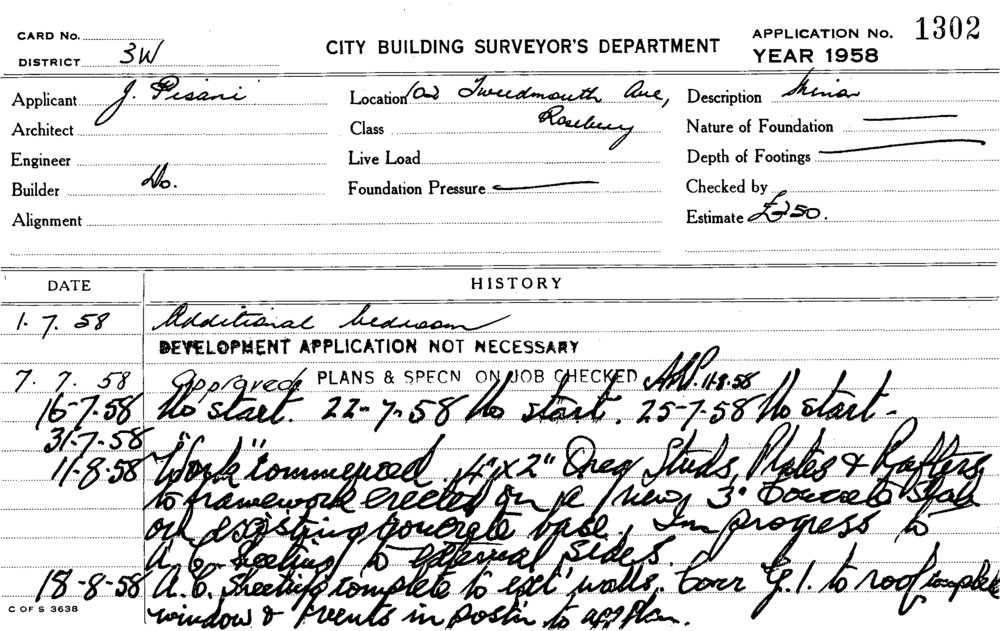 CARD No.
DISTRICT 3W
CITY BUILDING SURVEYOR'S DEPARTMENT
APPLICATION No. 1302
YEAR 1958
Applicant J. Pisani
Location 102 Tweedmouth Ave,
Rosebery
Description Minor
Architect
Class
Nature of Foundation
Engineer
Live Load
Depth of Footings
Builder Do.
Foundation Pressure
Checked by
Alignment
Estimate £250.
DATE
HISTORY
1. 7. 58 Additional bedroom
DEVELOPMENT APPLICATION NOT NECESSARY
7. 7. 58 Approved PLANS & SPECN ON JOB CHECKED 11-8-58
16-7-58 No start. 22-7-58 No start. 25-7-58 No start-
31-7-58 " "
11-8-58 Work commenced. 4"x2" Oreg Studs, Plates & Rafters
to framework erected on a new 3" concrete slab
on existing concrete base. In progress to
A.C. Sheeting to external sides.
18-8-58 A.C. Sheeting complete to ext walls. Corr G.I. to roof complete
window & vents in positn to app plan.
C OF S 3638